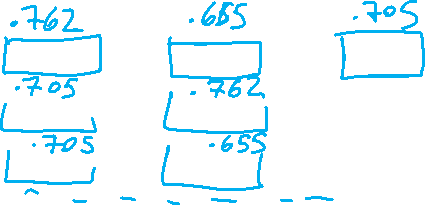 .762 .655 .705
.705 .762
.705 .655